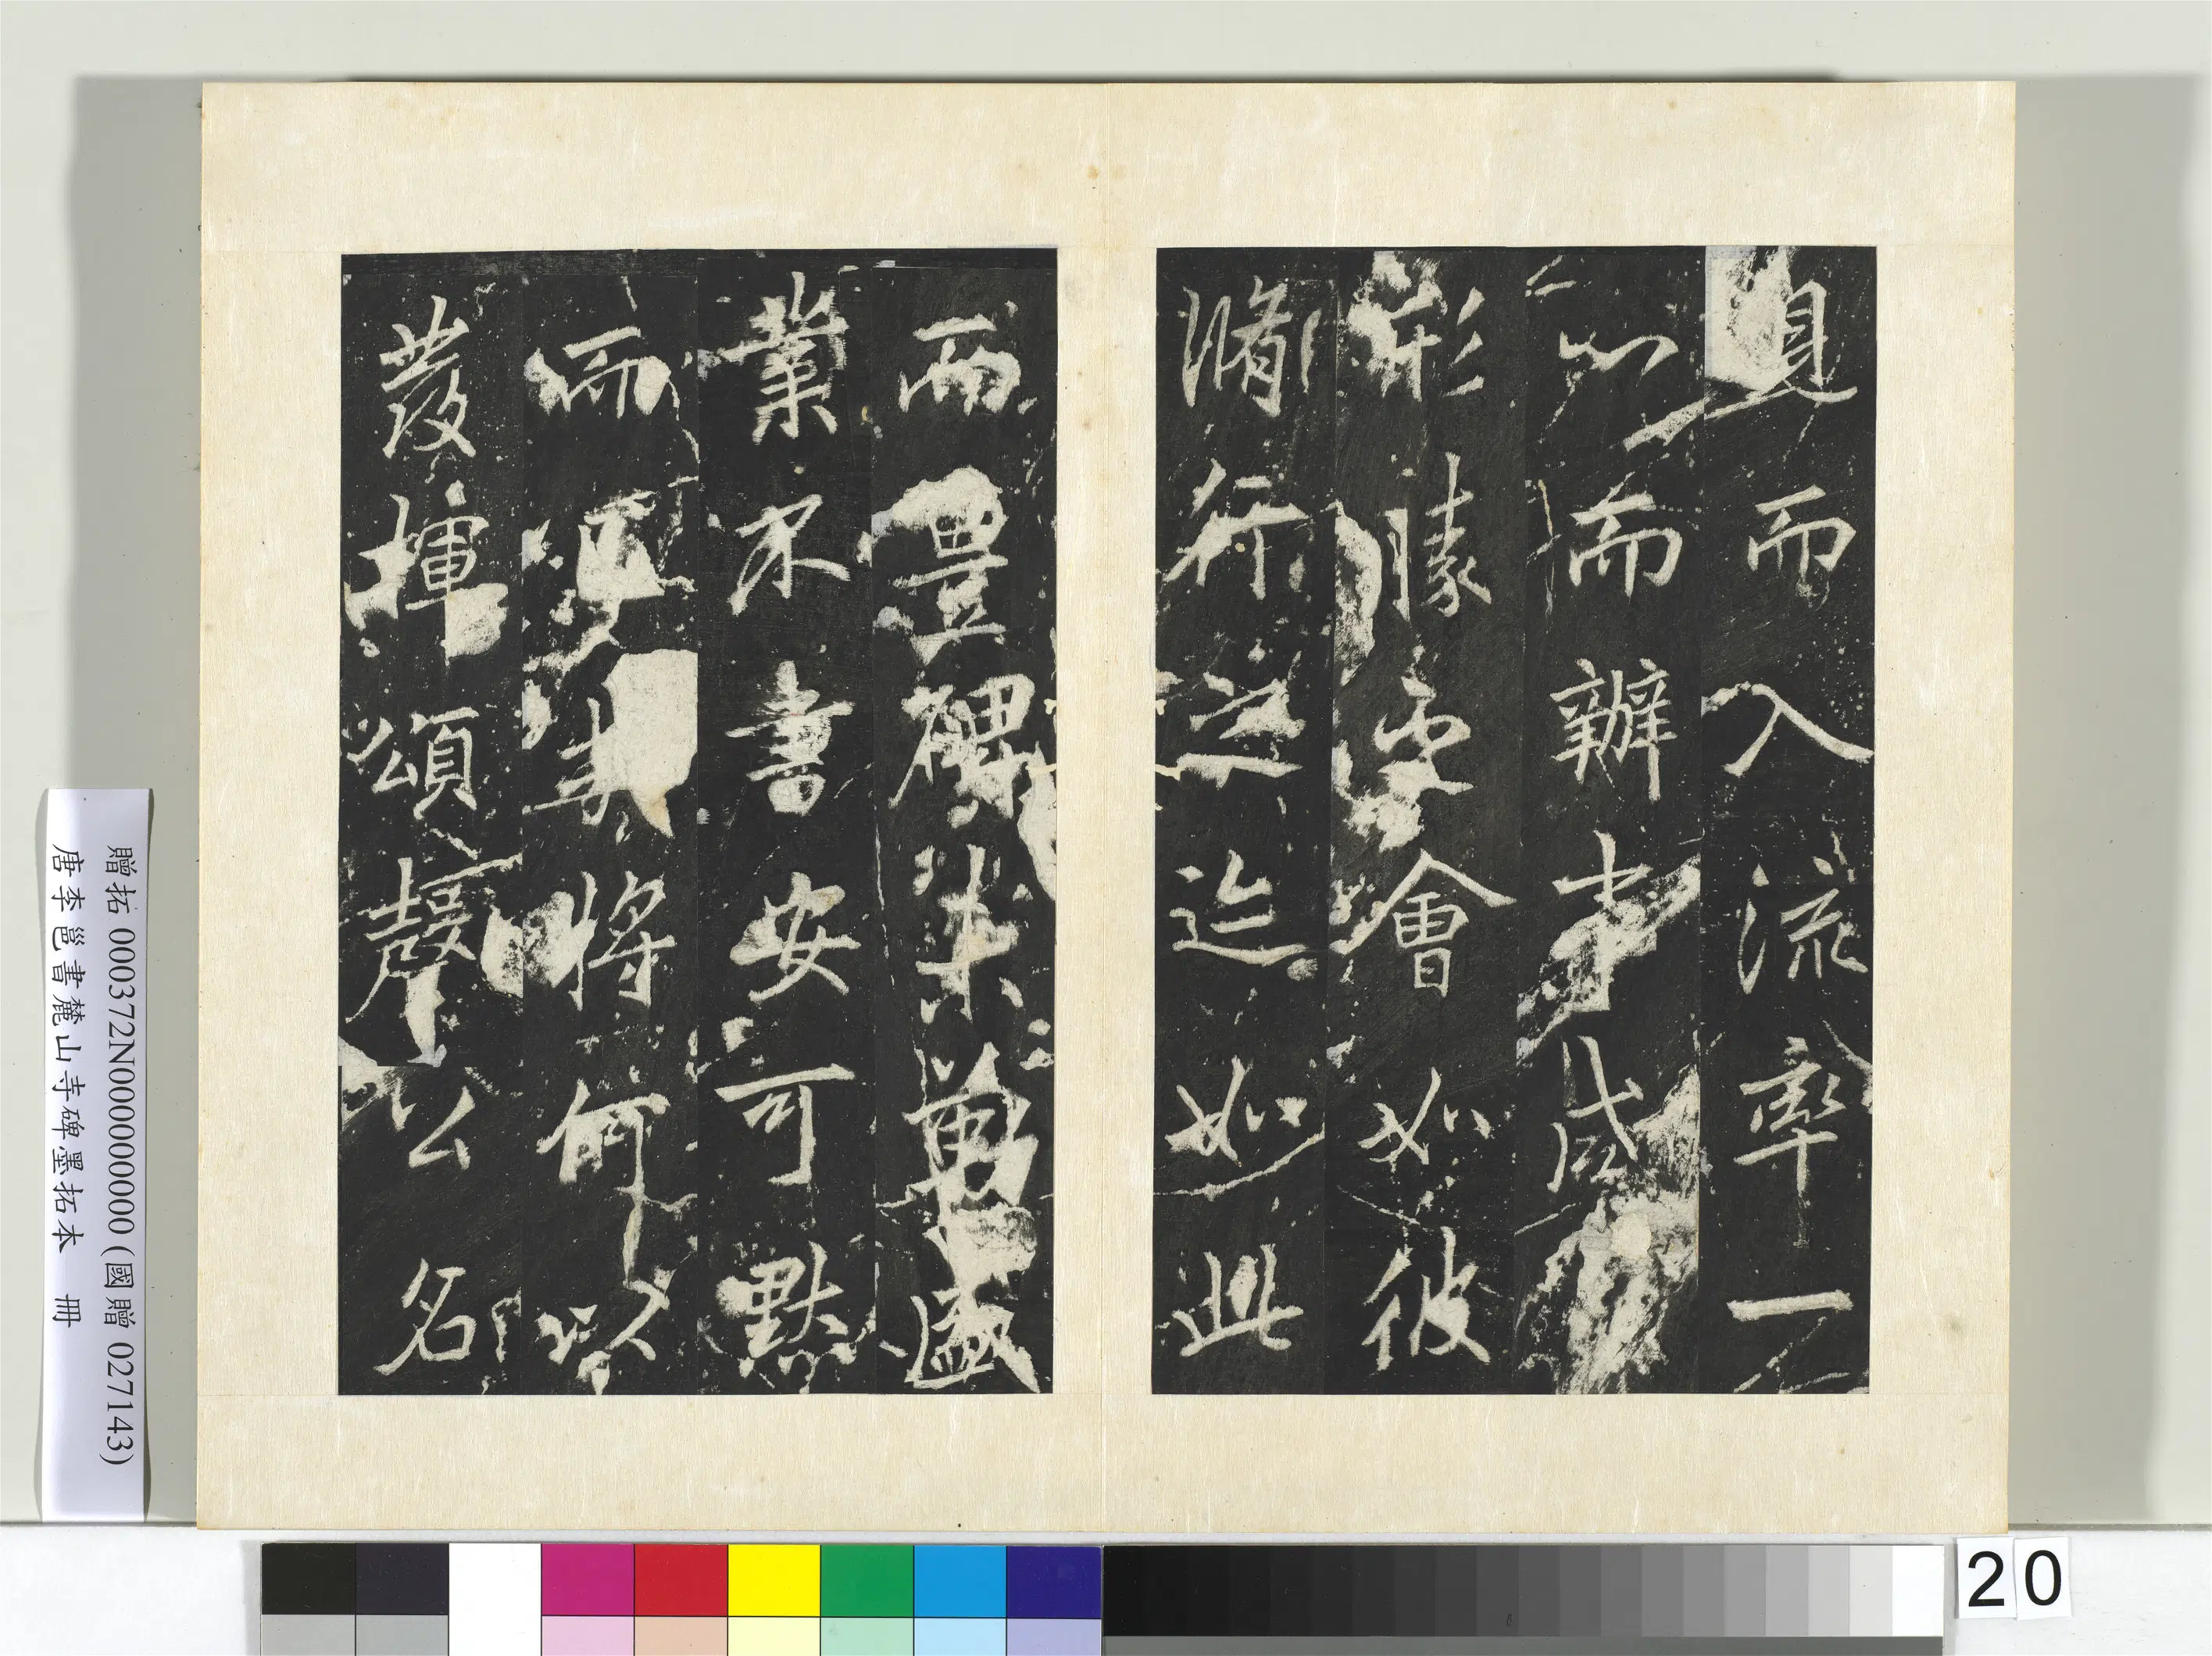 真而入流率一
心而辦事咸
形勝靈會如彼
脩行之迹如此
而豐碑未勒盛
業不書安可默
而　　將何以
發揮頌聲　名
贈拓 000372N000000000 (國贈 027143)
唐李邕書麓山寺碑墨拓本 冊
20